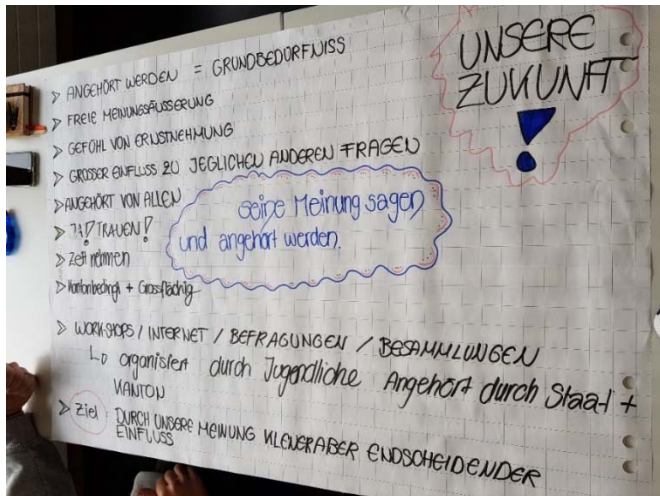 UNSERE
ZUKUNFT
!
> ANGEHÖRT WERDEN = GRUNDBEDÜRFNISS
> FREIE MEINUNGSÄUSSERUNG
> GEFÜHL VON ERNSTNEHMUNG
> GROSSER EINFLUSS ZU JEGLICHEN ANDEREN FRAGEN
> ANGEHÖRT VON ALLEN
> JA! TRAUEN!
> Zeit nehmen
> Kantonbedingt + Grossflächig
seine Meinung sagen
und angehört werden.
> WORKSHOPS / INTERNET / BEFRAGUNGEN / BESAMMLUNGEN
↳ organisiert durch Jugendliche Angehört durch Staat +
KANTON
> Ziel: DURCH UNSERE MEINUNG KLEINER ABER ENDSCHEIDENDER
EINFLUSS